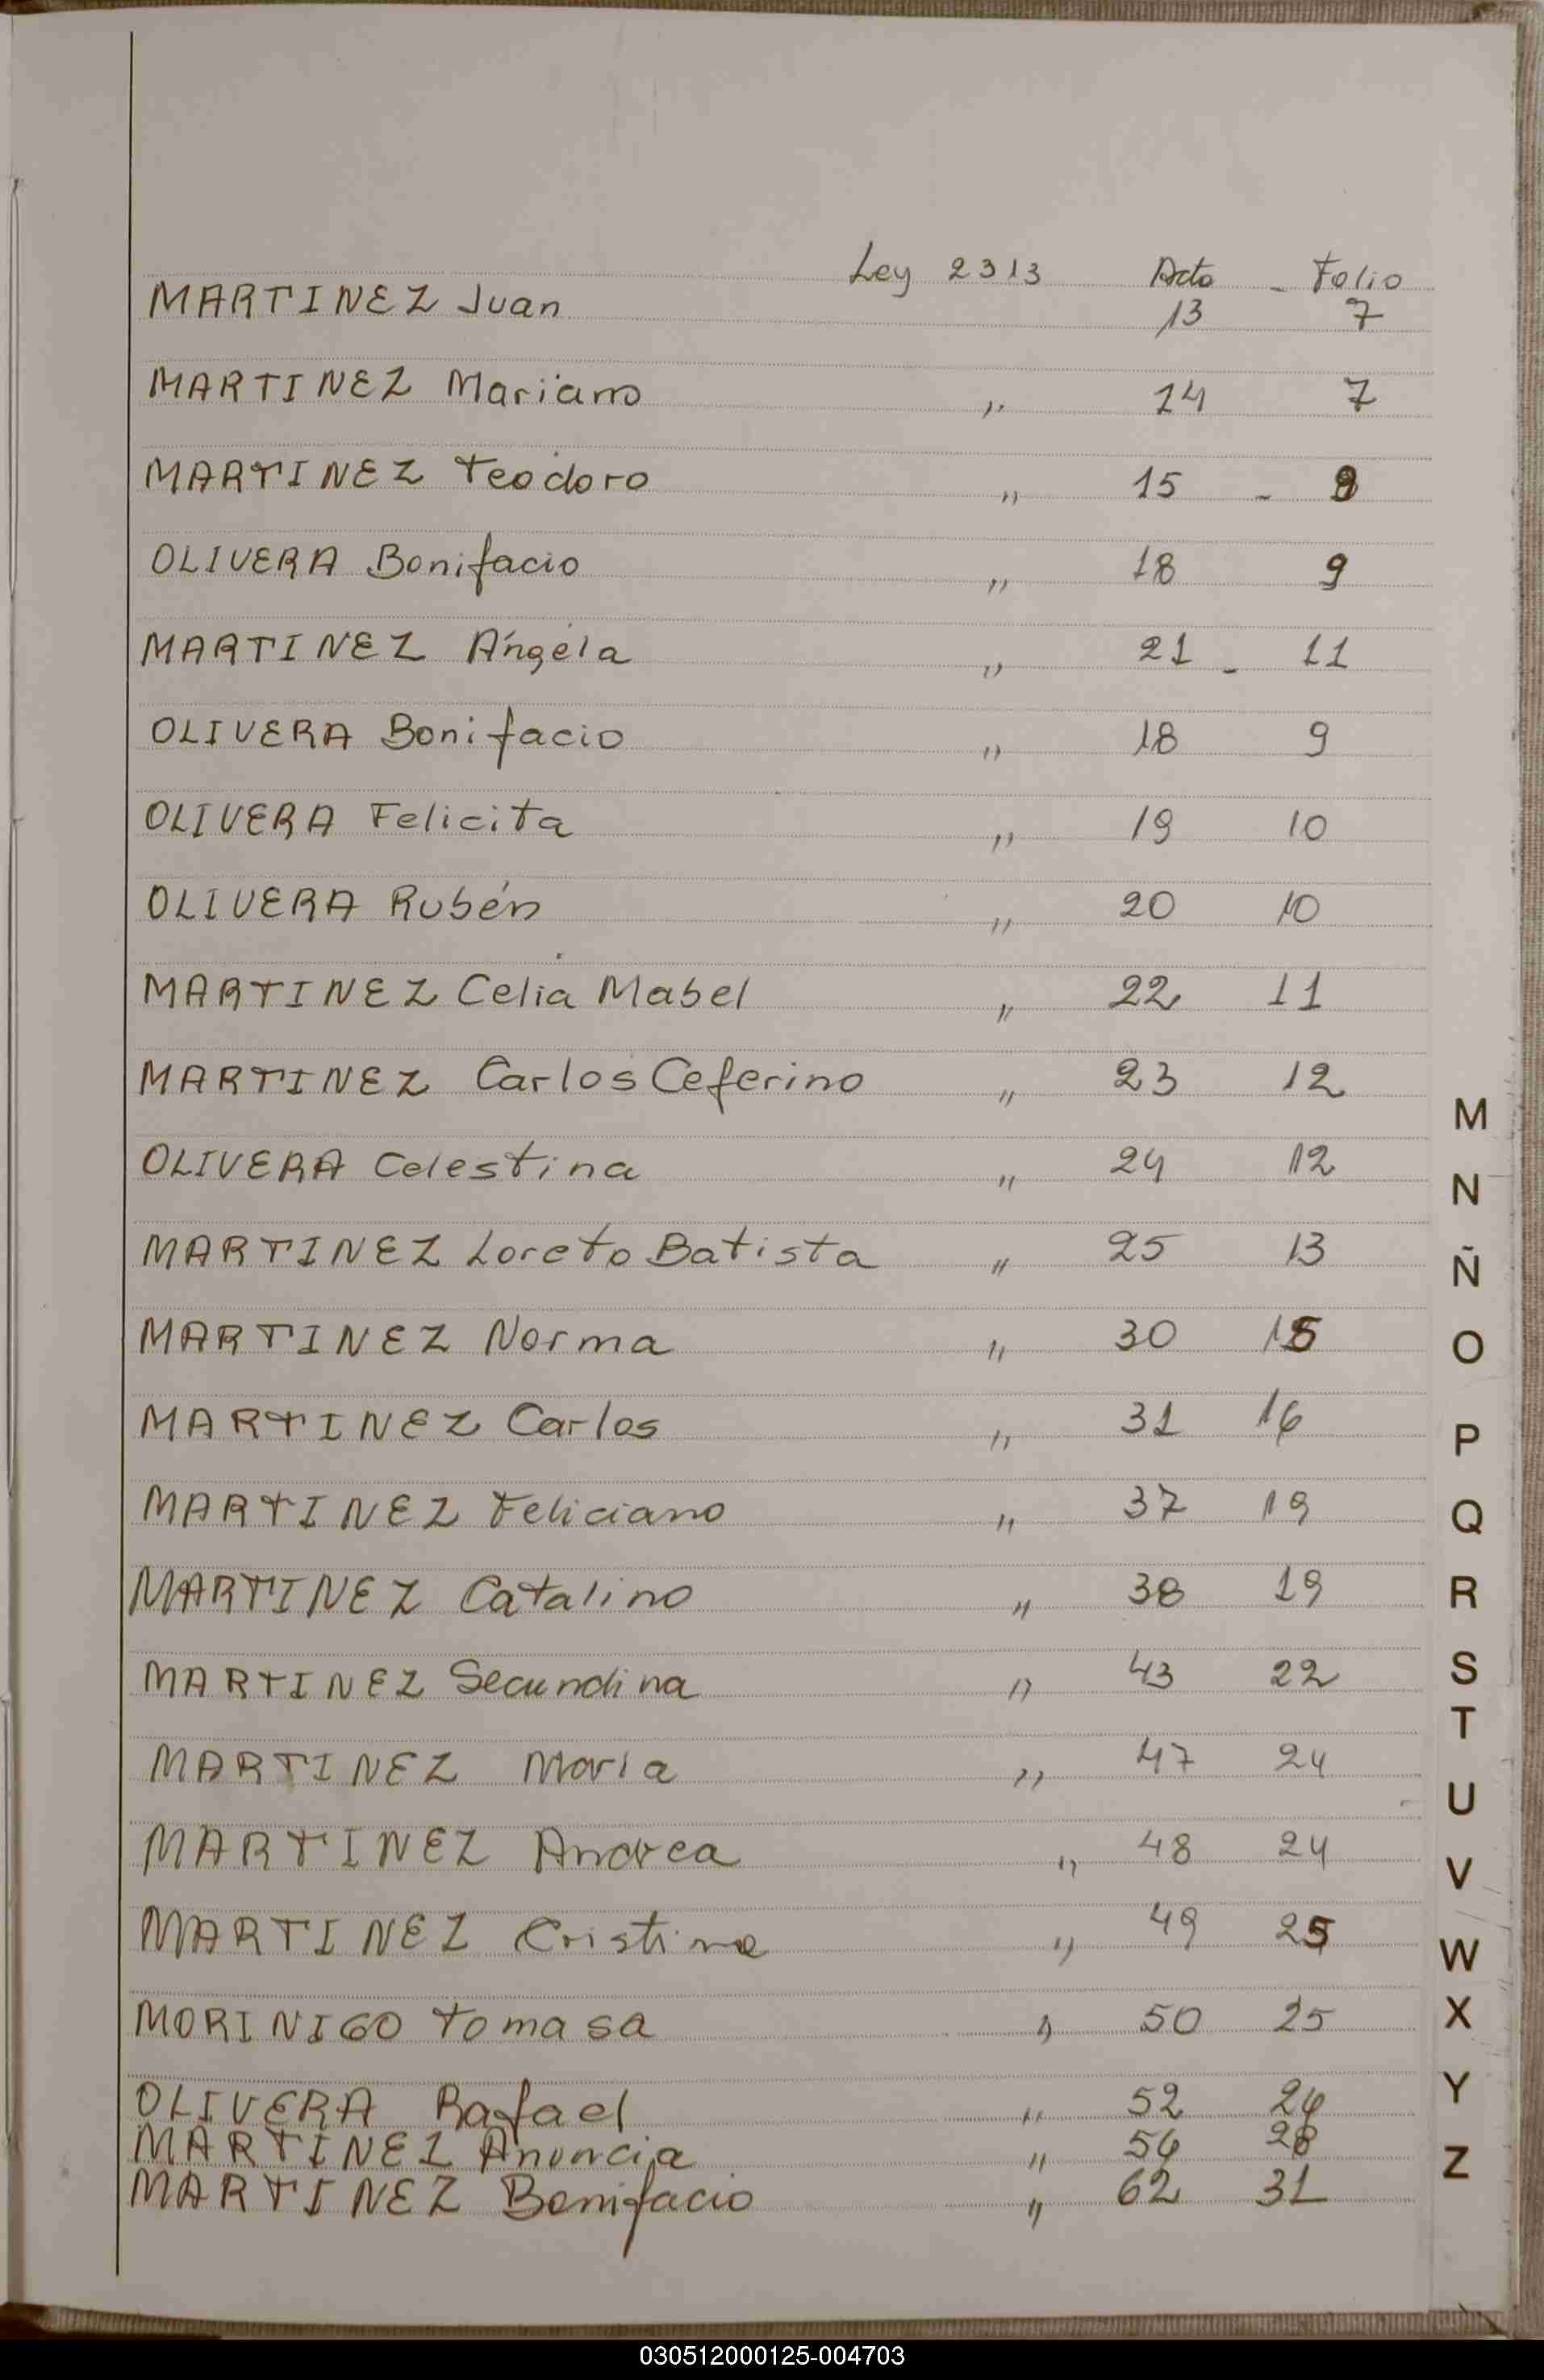 Ley 2313 Acto - Folio
MARTINEZ Juan 13 7
MARTINEZ Mariano " 14 7
MARTINEZ Teodoro " 15 - 8
OLIVERA Bonifacio " 18 9
MARTINEZ Angela " 21 - 11
OLIVERA Bonifacio " 18 9
OLIVERA Felicita " 19 10
OLIVERA Rubén " 20 10
MARTINEZ Celia Mabel " 22 11
MARTINEZ Carlos Ceferino " 23 12
OLIVERA Celestina " 24 12
MARTINEZ Loreto Batista " 25 13
MARTINEZ Norma " 30 15
MARTINEZ Carlos " 31 16
MARTINEZ Feliciano " 37 19
MARTINEZ Catalino " 38 19
MARTINEZ Secundina " 43 22
MARTINEZ Maria " 47 24
MARTINEZ Andrea " 48 24
MARTINEZ Cristina " 49 25
MORINIGO Tomasa " 50 25
OLIVERA Rafael " 52 26
MARTINEZ Anuncia " 56 28
MARTINEZ Bonifacio " 62 31
M
N
Ñ
O
P
Q
R
S
T
U
V
W
X
Y
Z
030512000125-004703